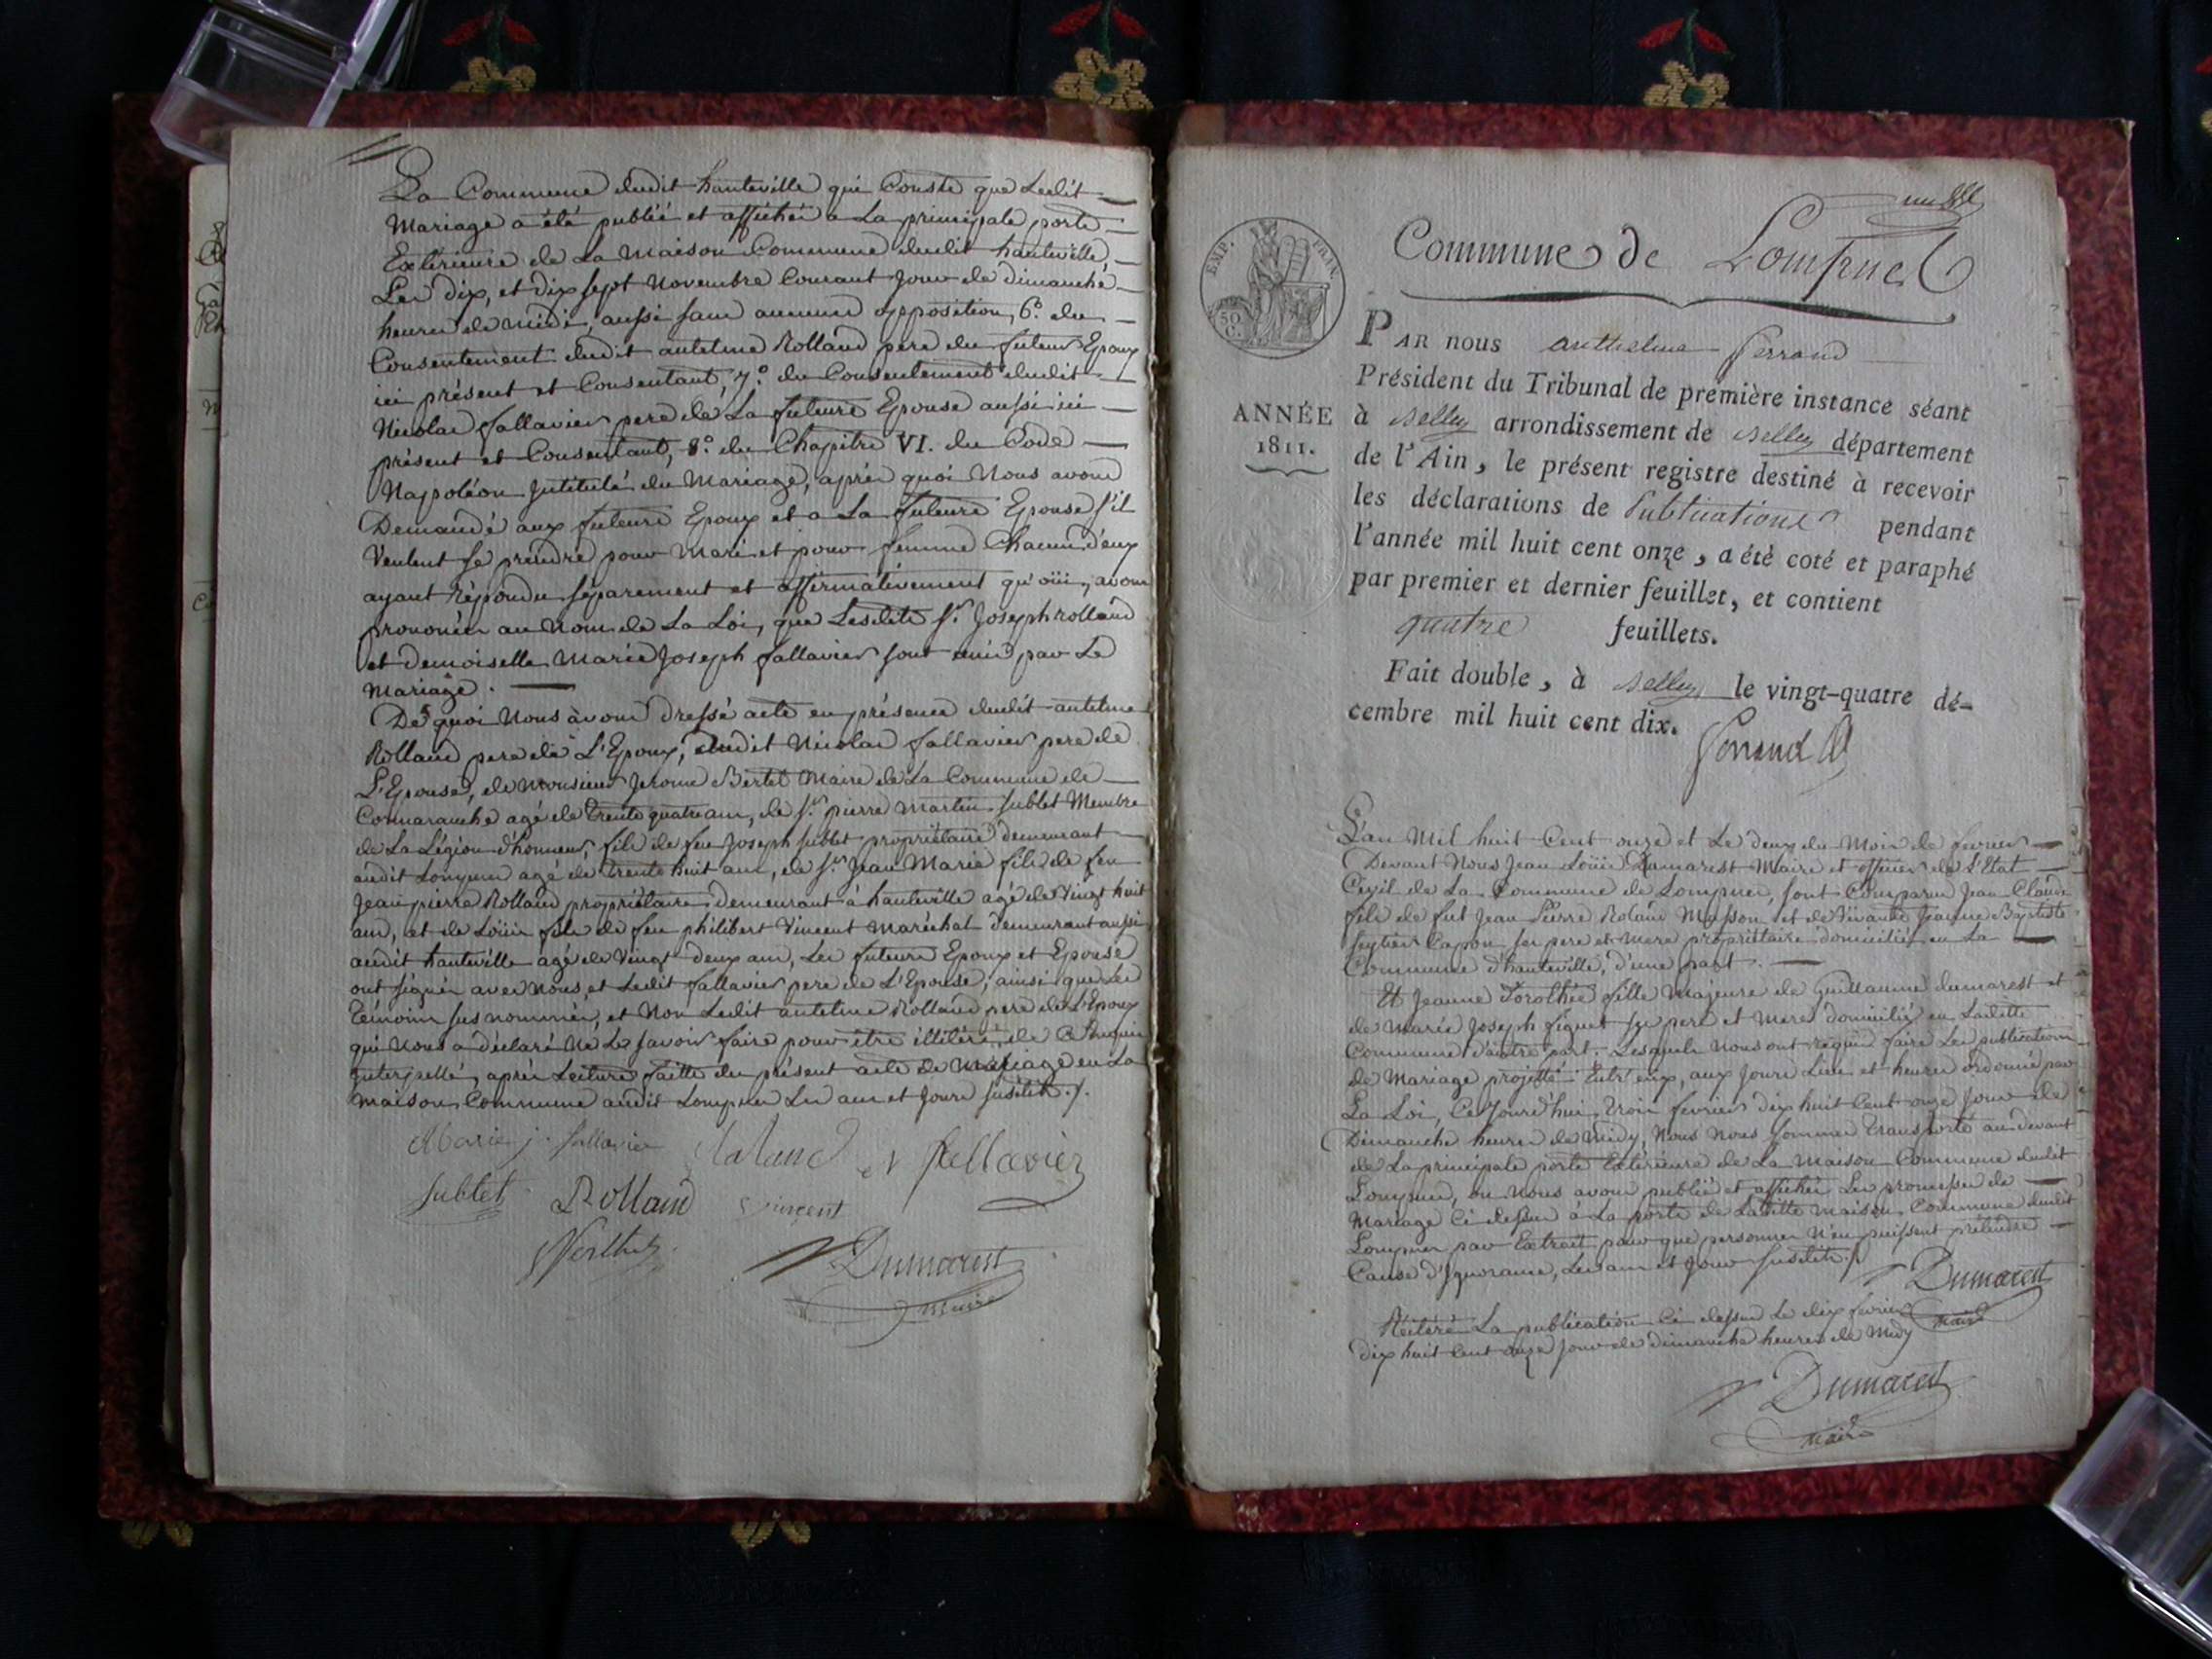 La Commune dudit hauteville qui Conste que Ledit
Mariage a été publié et affiché a La principale porte
Extérieure de La Maison Commune dudit hauteville,
Les dix, et dix sept Novembre Courant Jour de dimanche
heures de midi, aussi sans aucune opposition, 6.° du
Consentement dudit antelme Rolland pere du futeur Epoux
ici présent et Consentant, 7.° du Consentement dudit
Nicolas fallavier pere de La futeure Epouse aussi ici
présent et Consentant, 8.° du Chapitre VI. du Code
Napoléon Intitulé du Mariage, après quoi Nous avons
Demandé aux futeure Epoux et a La futeure Epouse s'il
Veulent se prendre pour Mari et pour femme Chacun d'eux
ayant Répondu séparement et affirmativement qu'oüi, avons
prononcé au Nom de La Loi, que Lesdits s.r Joseph rolland
et demoiselle Marie Joseph fallavier sont unis par Le
Mariage.
De quoi Nous avons Dressé acte en présence dudit antelme
Rolland pere de L'Epoux, dudit Nicolas fallavier pere de
L'Epouse, de Monsieur Jerome Bertet Maire de La Commune de
Cormaranche agé de trente quatre ans, de s.r pierre Martin sublet Membre
de La Légion d'honneur, fils de feu Joseph sublet propriétaire demeurant
audit Lompnes agé de trente huit ans, de s.r Jean Marie fils de feu
Jean pierre Rolland propriétaire Demeurant à hauteville agé de Vingt huit
ans, et de Loüis fils de feu philibert Vincent Maréchal demeurant aussi
audit hauteville agé de Vingt deux ans, Les futeurs Epoux et Epouse
ont signés avec Nous, et Ledit fallavier pere de L'Epouse, ainsi que Les
témoins sus nommés, et Non Ledit antelme Rolland pere de L'Epoux
qui Nous a déclaré Ne Le savoir faire pour être illitéré, de Ce Enquis
interpellé, après Lecture faitte du présent acte de Mariage en La
maison Commune audit Lompnes Les ans et Jours susdits ./.
Marie j. fallavier Rolland N fallavier
Sublet Rolland Vincent
Berthet Dumarest
Maire
Commune de Lompnes
EMP. FRAN.
50 C.
PAR nous Anthelme Ferrand
Président du Tribunal de première instance séant
ANNÉE
1811.
à Belley arrondissement de Belley département
de l'Ain, le présent registre destiné à recevoir
les déclarations de Publications pendant
l'année mil huit cent onze, a été coté et paraphé
par premier et dernier feuillet, et contient
quatre feuillets.
Fait double, à Belley le vingt-quatre dé-
cembre mil huit cent dix.
Ferrand
L'an Mil huit Cent onze et Le deux du Mois de fevrier
Devant Nous Jean Loüis Dumarest Maire et officier de L'Etat
Civil de La Commune de Lompnes, sont Comparus Jean Claude
fils de fut Jean Pierre Roland Masson et de Vivante Jeanne Baptiste
Capon ses pere et Mere propriétaire domiciliés en La
Commune d'hauteville, d'une part.
Et Jeanne Dorothée fille Majeure de Guillaume dumarest et
de Marie Joseph figuet ses pere et Mere domiciliés en Laditte
Commune d'autre part. Lesquels Nous ont requis faire Les publications
de Mariage projetté Entr'eux, aux Jours Lieu et heures ordonné par
La Loi, Ce Jourd'hui trois fevrier dix huit Cent onze Jour de
Dimanche heures de Midy, Nous Nous sommes transporté au devant
de La principale porte Extérieure de La Maison Commune dudit
Lompnes, ou Nous avons publié et affiché Les promesses de
Mariage Ci dessus à La porte de Laditte Maison Commune dudit
Lompnes par Extrait pour que personnes N'en puissent prétendre
Cause d'Ignorance, Les ans et Jour susdits ./.
Dumarest
maire
Réitéré La publication Ci dessus Le dix fevrier
dix huit Cent onze Jour de dimanche heures de Midy
Dumarest
maire